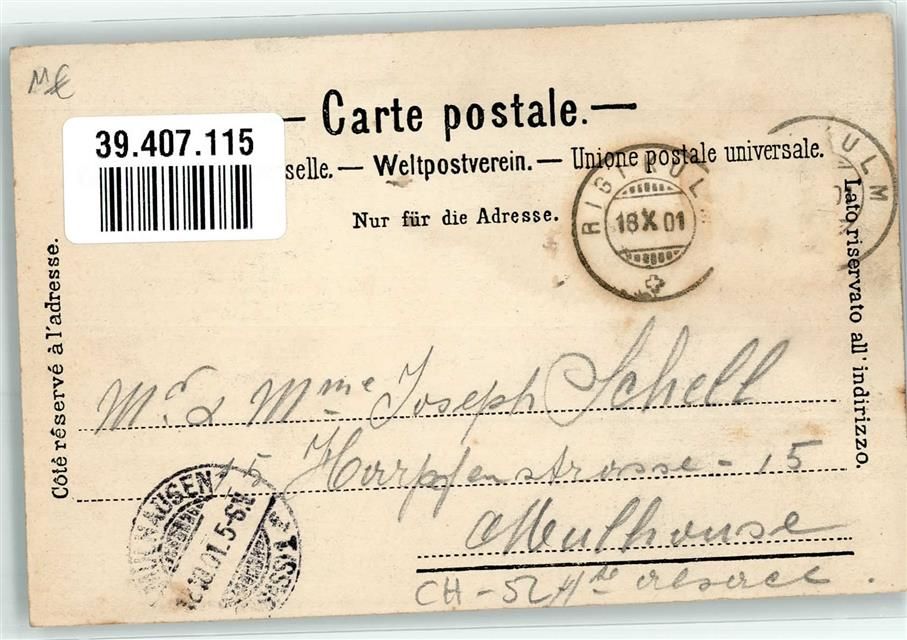 M€
— Carte postale. —
39.407.115
selle. — Weltpostverein. — Unione postale universale.
Nur für die Adresse.
RIGI KUL
18 X 01
KULM
Côté réservé à l'adresse.
Lato riservato all' indirizzo.
Mr & Mme Joseph Schell
15 Harpfenstrasse - 15
Mulhouse
Hte alsace.
CH-52
MULHAUSEN
.10.01.5-6.N